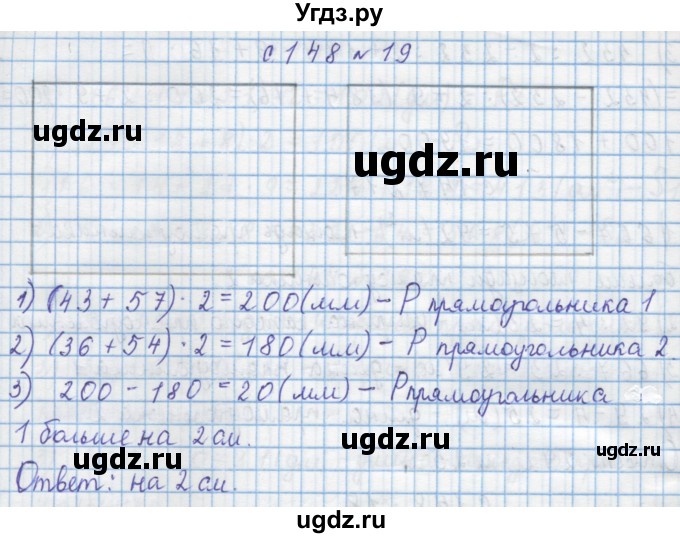 Угдз.ру
с 148 № 19
ugdz.ru
ugdz.ru
1) (43 + 57) · 2 = 200 (мм) – Р прямоугольника 1
2) (36 + 54) · 2 = 180 (мм) – Р прямоугольника 2.
3) 200 – 180 = 20 (мм) – Р прямоугольника
1 больше на 2 см.
ugdz.ru
ugdz.ru
Ответ: на 2 см.
ugdz.ru